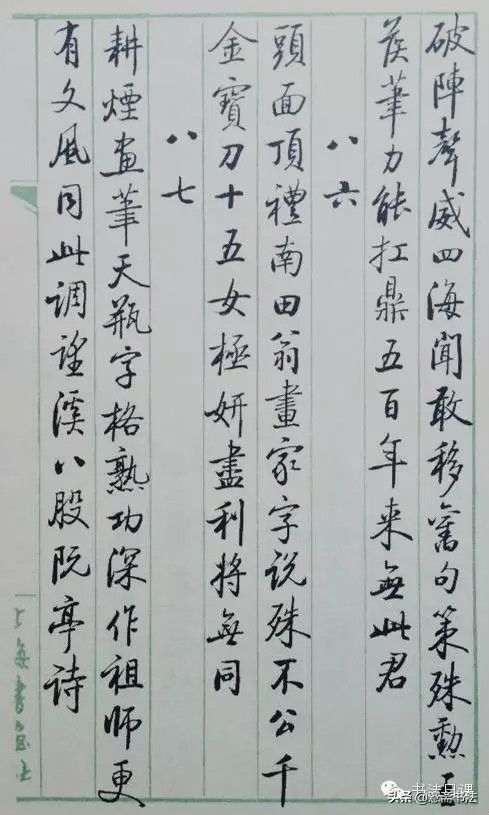 破陣聲威四海聞敢移舊句策殊勳王
侯筆力能扛鼎五百年来無此君
八六
頭面頂禮南田翁畫家字说殊不公千
金寶刀十五女極妍盡利將無同
八七
耕煙畫筆天瓶字格熟功深作祖師更
有文風同此调望溪八股阮亭诗
上海書画社
书法日课
头条 @懸斋书法